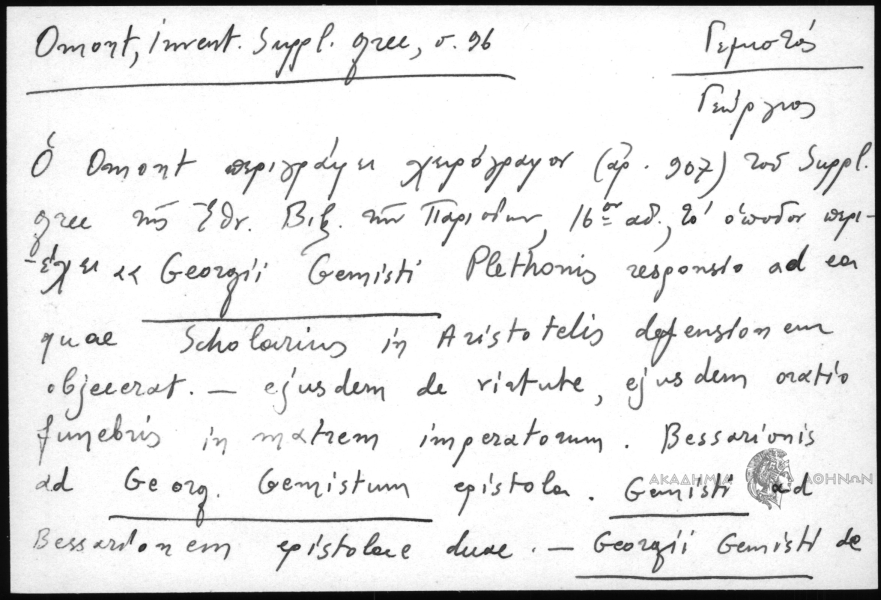 Omont, invent. Suppl. grec, σ. 96
Γεμιστός
Γεώργιος
Ὁ Omont περιγράφει χειρόγραφον (ἀρ. 907) τοῦ Suppl.
grec τῆς Ἐθν. Βιβ. τῶν Παρισίων, 16ου αἰ., τὸ ὁποῖον περι-
-έχει «« Georgii Gemisti Plethonis responsio ad ea
quae Scholarius in Aristotelis defensionem
objecerat. — ejusdem de virtute, ejusdem oratio
funebris in matrem imperatorum. Bessarionis
ad Georg. Gemistum epistola. Gemisti ad
ΑΚΑΔΗΜΙΑ ΑΘΗΝΩΝ
Bessarionem epistolae duae. — Georgii Gemisti de